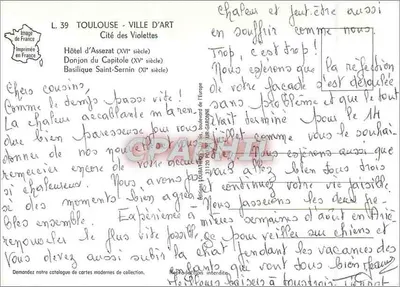 L. 39 TOULOUSE - VILLE D'ART
Cité des Violettes
Image de France
Imprimée en France
Hôtel d'Asserat (XVIe siècle)
Donjon du Capitole (XVIe siècle)
Basilique Saint-Sernin (XIe siècle)
Chers cousins,
Comme le temps passe vite !
La chaleur accablante m'a rendue
bien paresseuse pour vous
donner de nos nouvelles et vous
remercier encore de votre accueil
si chaleureux. Nous avons passé
des moments bien agréables
ensemble. Expérience à
renouveler le plus vite possible.
Vous devez aussi subir la
chaleur et peut-être aussi
en souffrir comme nous.
Trop, c'est trop !
Nous espérons que la réfection
de votre façade s'est déroulée
sans problème et que tout
était terminé pour le 14
comme vous le souhaitiez.
Nous espérons aussi que
vous allez bien tous trois
continuez votre vie paisible.
Nous passerons les deux premières
semaines d'août en Ariège
pour veiller sur chiens et
chat pendant les vacances des
enfants qui vont tous bien.
Meilleurs baisers à tous trois
CPARHTI
Demandez notre catalogue de cartes modernes de collection.
Reproduction interdite